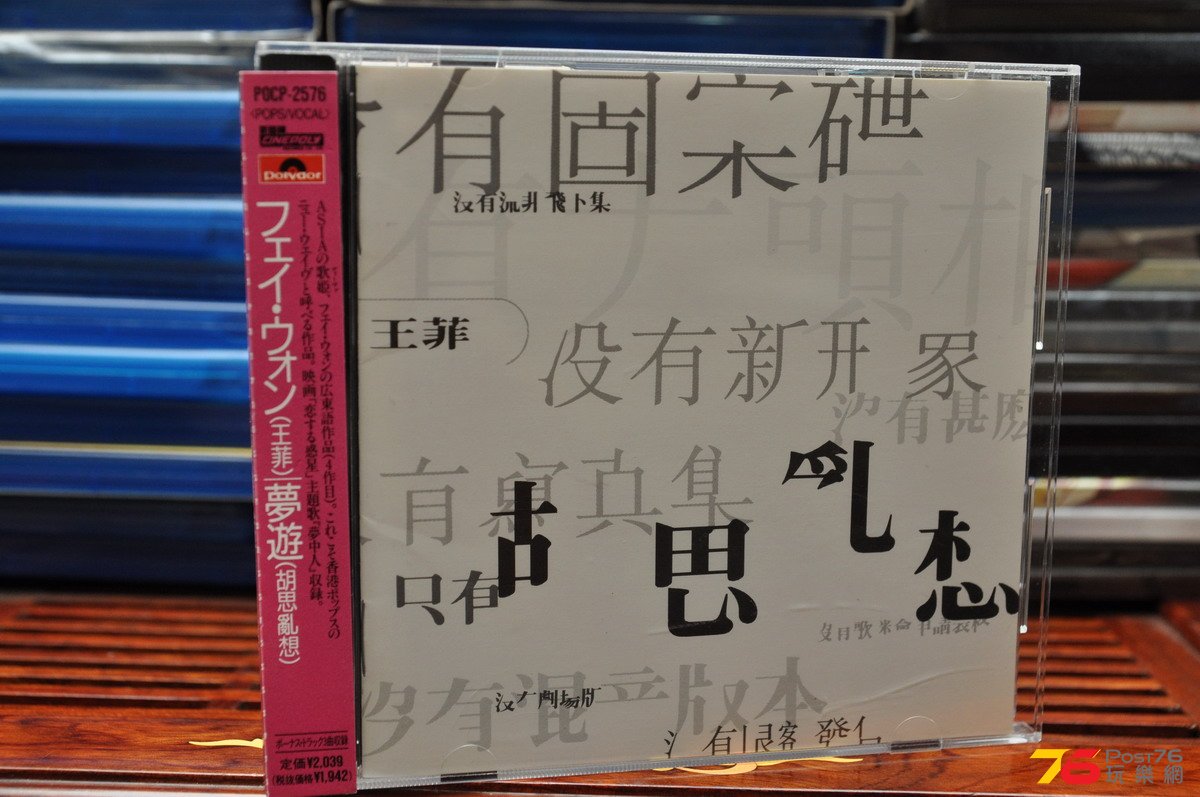 POCP-2576
〈POPS/VOCAL〉
CINEPOLY
Polydor
フェイ・ウォン(王菲)/夢遊(胡思亂想)
ASIAの歌姫、フェイ・ウォンの広東語作品(4作目)。これこそ香港ポップスの
ニュー・ウェイヴと呼べる作品。映画「恋する惑星」主題歌「夢中人」収録。
ボーナス・トラック3曲収録
定価¥2,039
(税抜価格¥1,942)
有
沒有 飛 集
王菲
没有新开
沒有甚麽
有 真集
胡思亂想
只有
沒有混音版本
劇場版
有
Post76
玩樂網